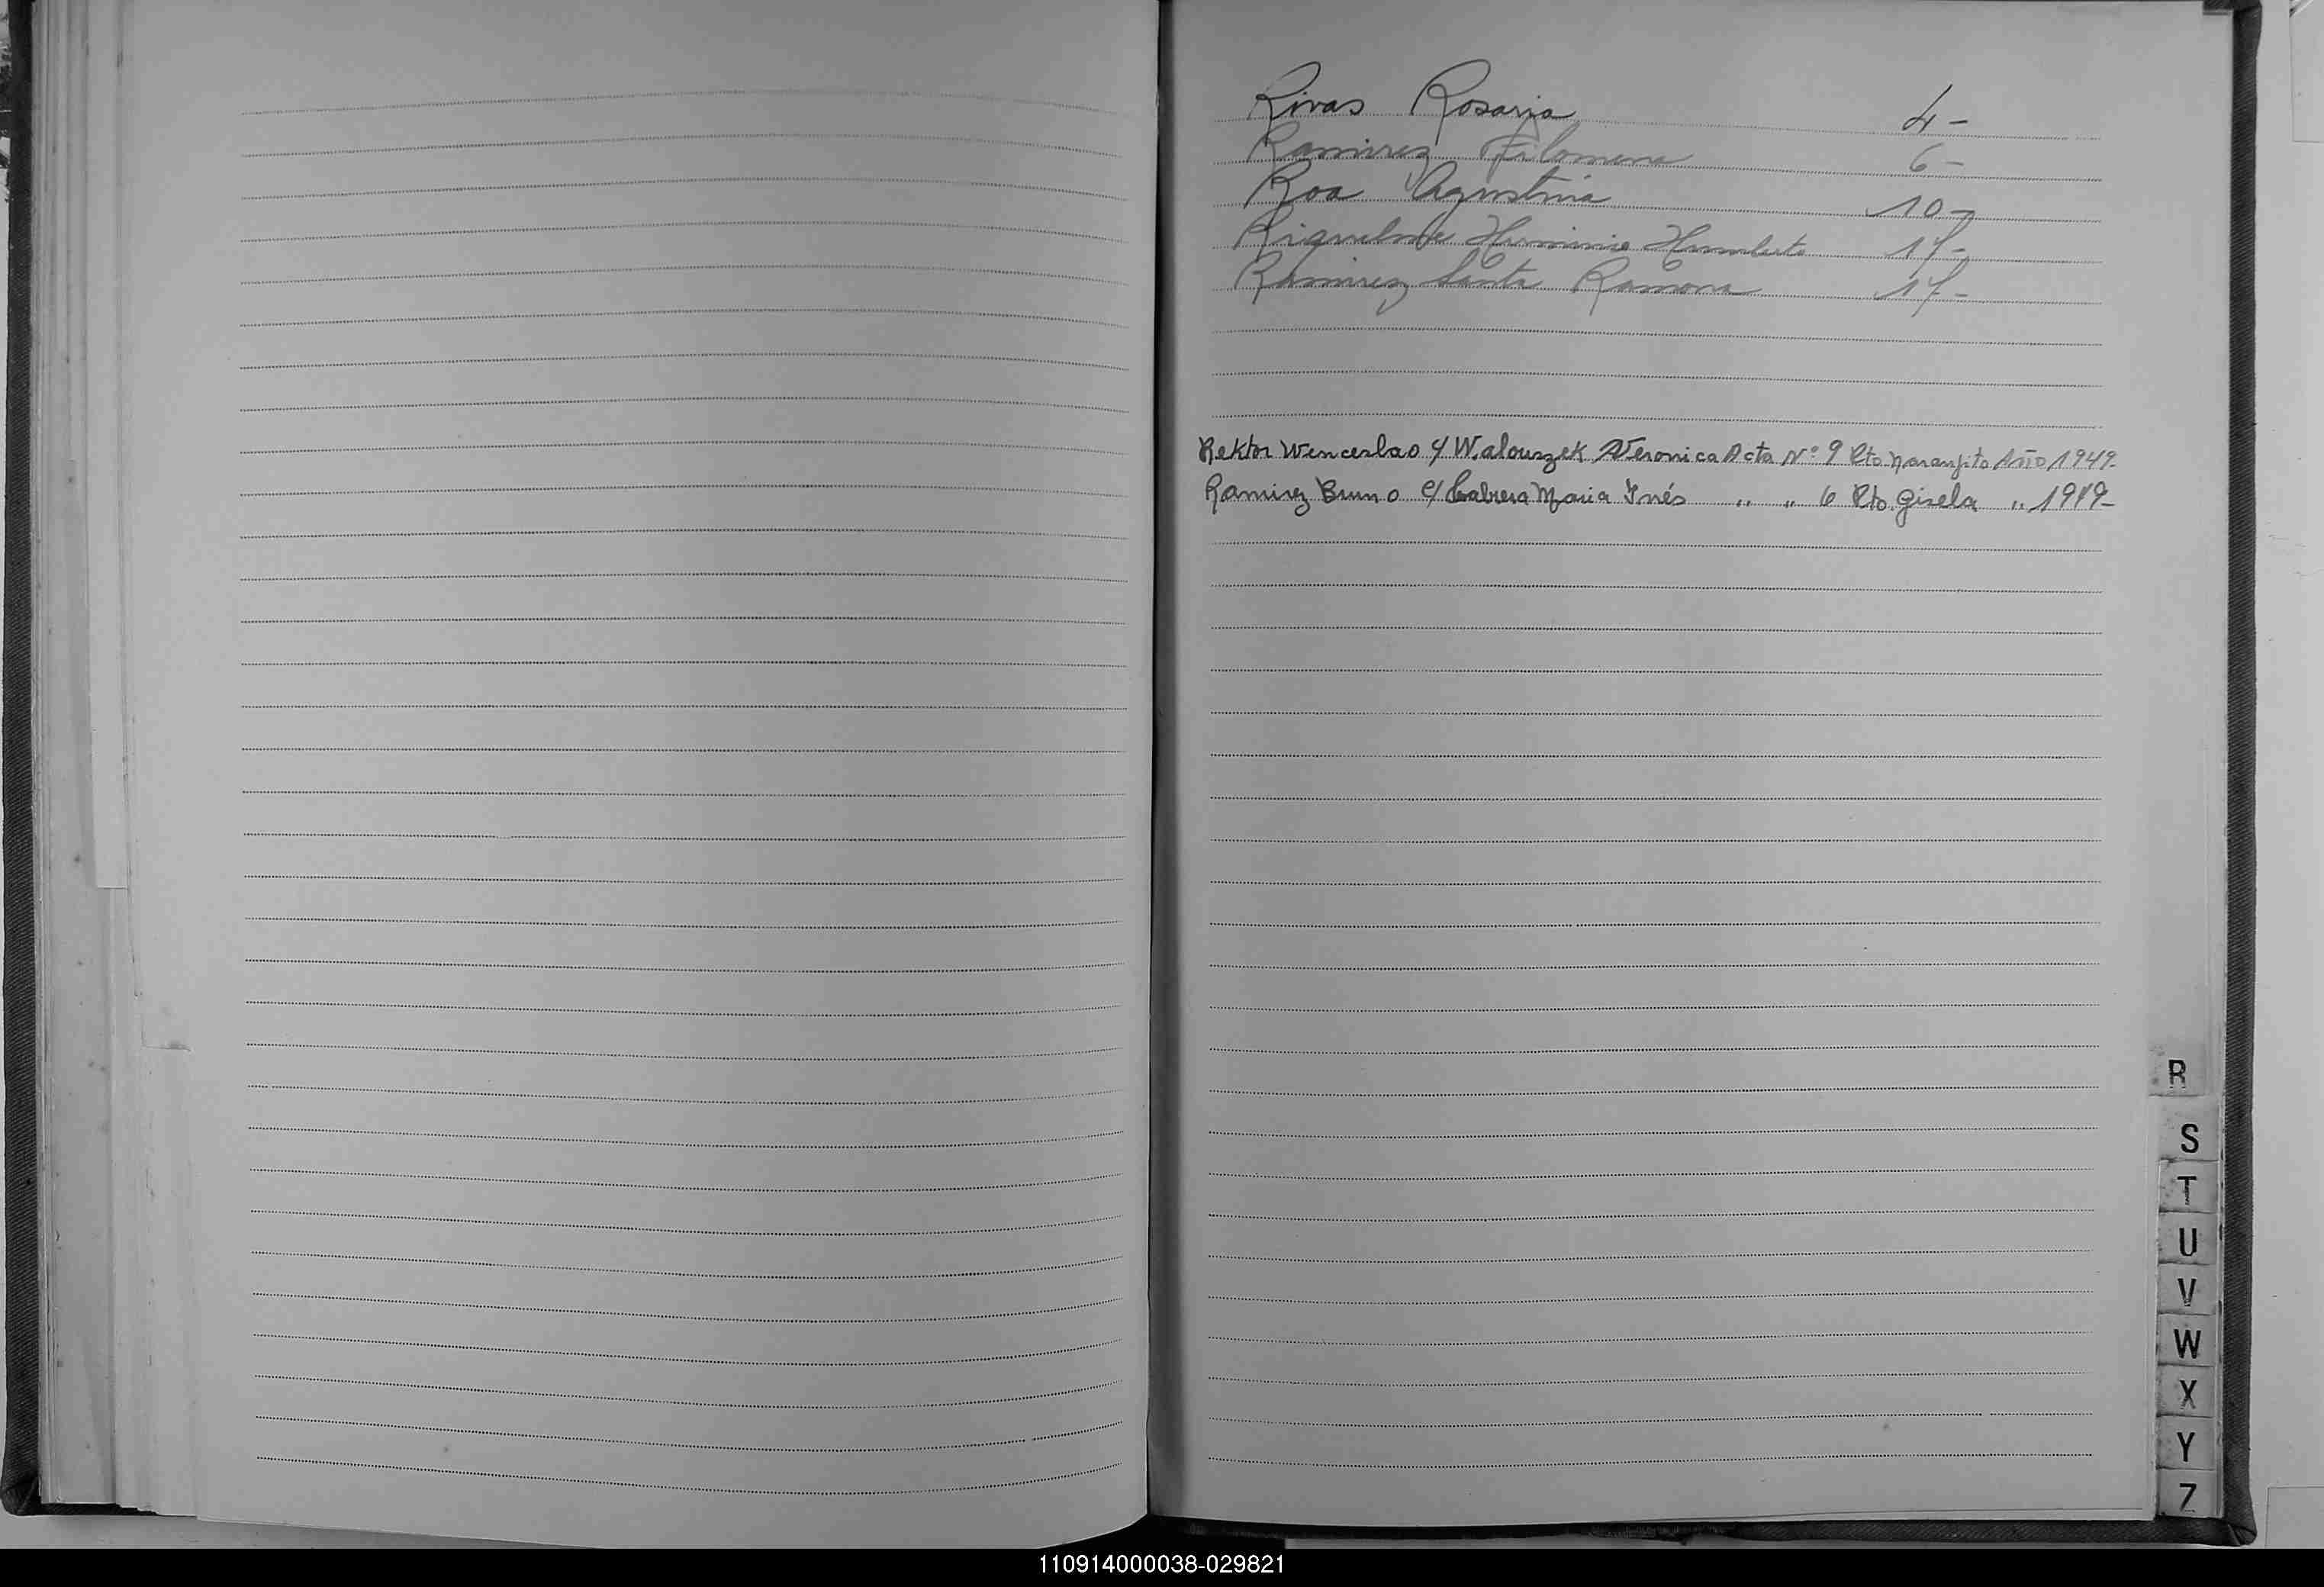 Rivas Rosaria 4-
Ramirez Filomena 6-
Roa Agustina 10-
Riquelme Herminio Humberto 17-
Ramirez Santa Ramona 17-
Rektor Wenceslao y Walouszek Veronica Acta Nº 9 Rto Naranjito Año 1949-
Ramirez Bruno c/ Cabrera Maria Inés " " 6 Rto. Gisela " 1949-
R
S
T
U
V
W
X
Y
Z
110914000038-029821